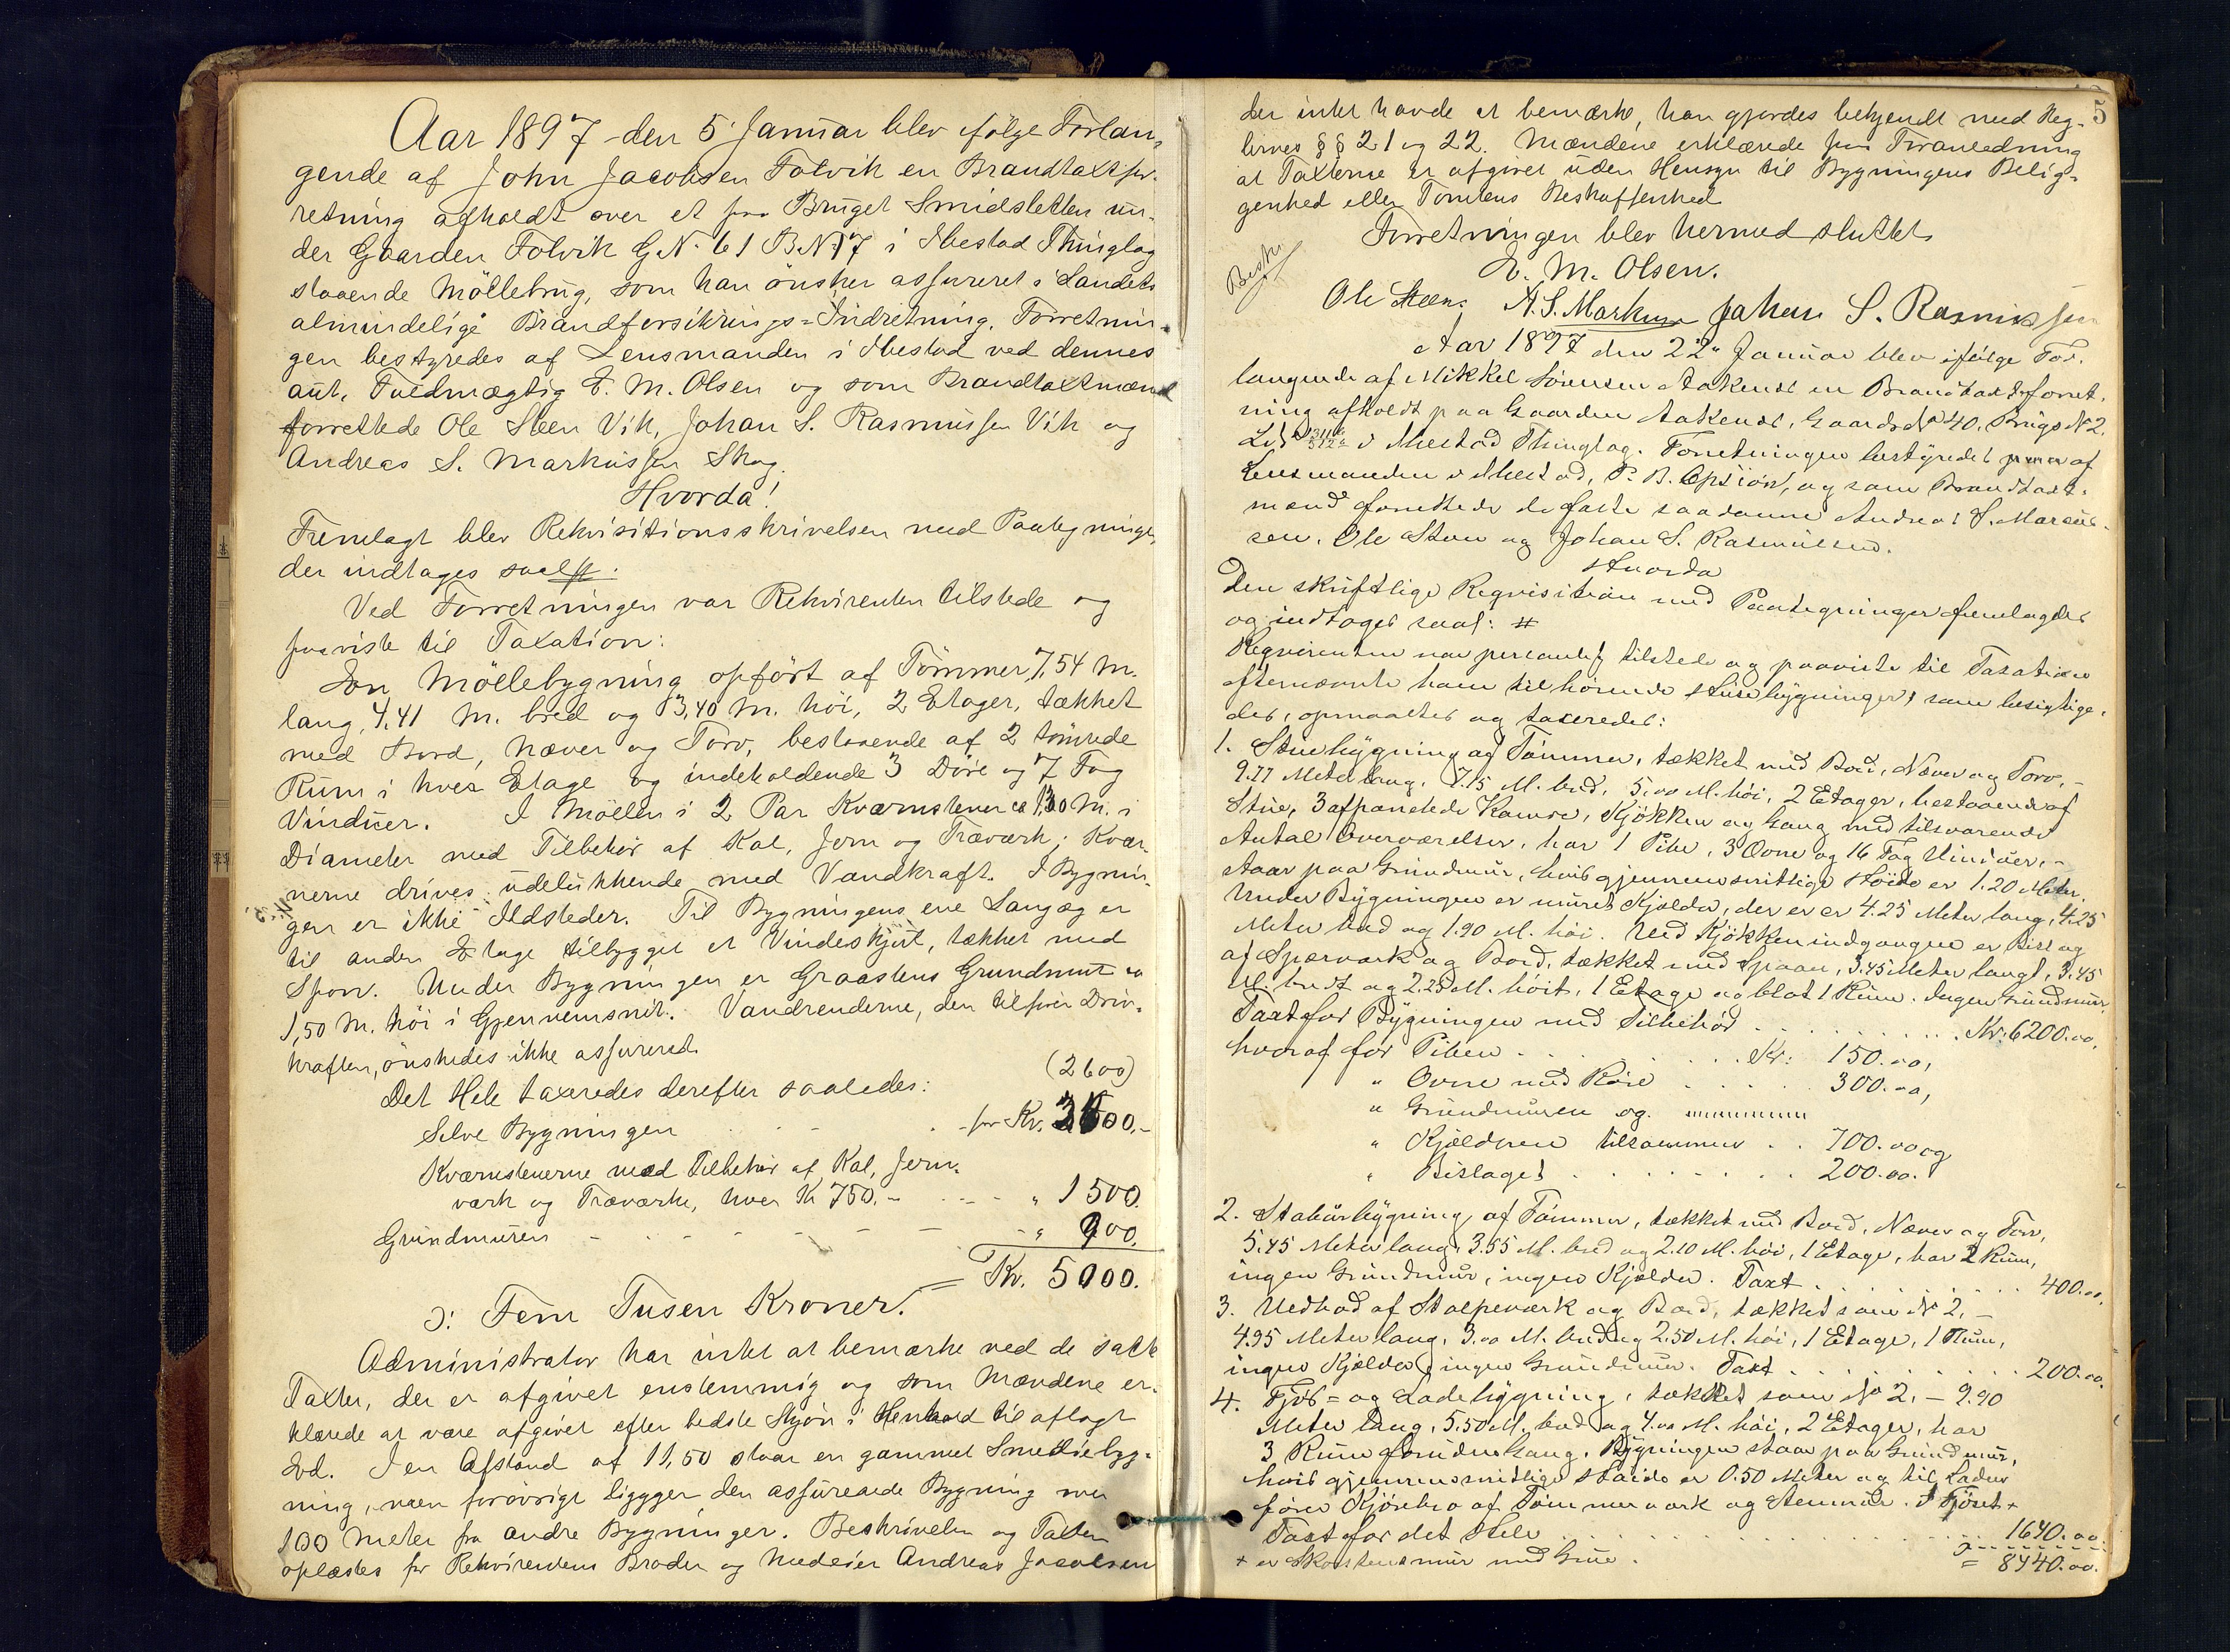 Aar 1897 den 5 Januar blev ifølge Forlan-
gende af John Jacobsen Folvik en Brandtaxtfor-
retning afholdt over et paa Bruget Smidsletten un-
der Gaarden Folvik G.N. 61 B.N. 17 i Ibestad Thinglag
staaende Möllebrug, som han önsker assureret i Landets
almindelige Brandforsikrings-Indretning. Forretnin-
gen bestyredes af Lensmanden i Ibestad ved dennes
aut. Fuldmægtig E. M. Olsen og som Brandtaxtmænd
forrettede Ole Steen Vik, Johan S. Rasmussen Vik og
Andreas S. Markussen Skog.
Hvorda!
Fremlagt blev Rekvisitionsskrivelsen med Paategninger,
der indtages saal #.
Ved Forretningen var Rekvirenten tilstede og
paaviste til Taxation:
En Möllebygning opfört af Tömmer, 7,54 M.
lang, 4,41 M. bred og 3,40 M. höi, 2 Etager, tækket
med Bord, Næver og Torv, bestaaende af 2 tömrede
Rum i hver Etage og indeholdende 3 Döre og 7 Fag
Vinduer. I Möllen i 2 Par Kværnstener ca 1,30 M. i
Diameter med Tilbehör af Kal, Jern og Træværk; Kvær-
nerne drives udelukkende med Vandkraft. I Bygnin-
gen er ikke Ildsteder. Til Bygningens ene Langvæg er
til anden Etage tilbygget et Vindeskjut, tækket med
Spon. Under Bygningen er Graastens Grundmur ca
1,50 M. höi i Gjennemsnit. Vandrenderne, den tilfører Driv-
kraften, önskedes ikke assureret.
Det Hele taxeredes derefter saaledes: (2600)
Selve Bygningen - for Kr. 2600.-
Kværnstenerne med Tilbehör af Kal, Jern-
værk og Træværk, hver Kr 750.- - - - " 1500.
Grundmuren - - - - - - " 900.
= Kr. 5000.
ɔ: Fem Tusen Kroner.
Administrator har intet at bemærke ved de satte
Taxter, der er afgivet enstemmig og som Mændene er-
klærede at være afgivet efter bedste Skjön i Henhold til aflagt
Ed. I en Afstand af 11,50 staar en gammel Smediebyg-
ning, men forövrigt ligger den assurerede Bygning over
100 Meter fra andre Bygninger. Beskrivelsen og Taxten
oplæstes for Rekvirentens Broder og Medeier Andreas Jacobsen
5
der intet havde at bemærke, han gjordes bekjendt med Reg-
lernes §§ 21 og 22. Mændene erklærede paa Foranledning
at Taxterne er afgivet uden Hensyn til Bygningens Belig-
genhed eller Tomtens Beskaffenhed.
Forretningen blev hermed sluttet.
E. M. Olsen.
Besk.
Ole Steen. A. S. Markussen Johan S. Rasmussen
Aar 1897 den 22" Januar blev ifølge For-
langende af Mikkel Sörensen Aakenes en Brandtaxtforret-
ning afholdt paa Gaarden Aakenes, Gaards No 40, Brugs No 2,
i Ibestad Thinglag. Forretningen bestyredes af
Lensmanden i Ibestad, P. B. Opsjön, og som Brandtaxt-
mænd forrettede de faste saadanne Andreas S. Marcus-
sen, Ole Steen og Johan S. Rasmussen.
Hvorda
Den skriftlige Reqvisition med Paategninger fremlagdes
og indtages saal: #
Reqvirenten var personlig tilstede og paaviste til Taxation
efternævnte ham tilhörende Husebygninger, som besigtige-
des, opmaaltes og taxeredes:
1. Stuebygning af Tömmer, tækket med Bord, Næver og Torv, -
9.77 Meter lang, 7.15 M. bred, 5.00 M. höi, 2 Etager, bestaaende af
Stue, 3 afpanelede Kamre, Kjökken og Gang med tilsvarende
Antal Overværelser, har 1 Pibe, 3 Ovne og 16 Fag Vinduer, -
staar paa Grundmur, hvis gjennemsnitlige Höide er 1.20 Meter.
Under Bygningen er muret Kjælder, der er er 4.25 Meter lang, 4.25
Meter bred og 1.90 M. höi. Ved Kjökkenindgangen er Bislag
af Spærværk og Bord, tækket med Spaan, 3.45 Meter langt, 3.45
M. bredt og 2.25 M. höit, 1 Etage og blot 1 Rum. Ingen Grundmur.
Taxt for Bygningen med Tilbehör . . . . . Kr. 6200.00,
hvoraf for Piben . . . . . Kr: 150.00,
" Ovne med Rör . . . . . 300.00,
" Grundmuren og
" Kjælderen tilsammen . . 700.00 og
" Bislaget . . . . . . . . 200.00.
2. Stabursbygning af Tömmer, tækket med Bord, Næver og Torv,
5.45 Meter lang, 3.55 M. bred og 2.10 M. höi, 1 Etage, har 2 Rum,
ingen Grundmur, ingen Kjælder. Taxt . . . . . 400.00.
3. Vedbod af Stolpeværk og Bord, tækket som No 2, -
4.95 Meter lang, 3.00 M. bred og 2.50 M. höi, 1 Etage, 1 Rum,
ingen Kjælder, ingen Grundmur. Taxt . . . . . 200.00.
4. Fjös- og Ladebygning, tækket som No 2, - 9.90
Meter lang, 5.50 M. bred og 4.00 M. höi, 2 Etager, har
3 Rum foruden Gang. Bygningen staar paa Grundmur,
hvis gjennemsnitlige Höide er 0.50 Meter og til Laden
fører Kjörebro af Tömmerværk og Stenmur. I Fjöset +
Taxt for det Hele . . . . . 1640.00
+ er Skorstensmur med Grue. = 8440.00.